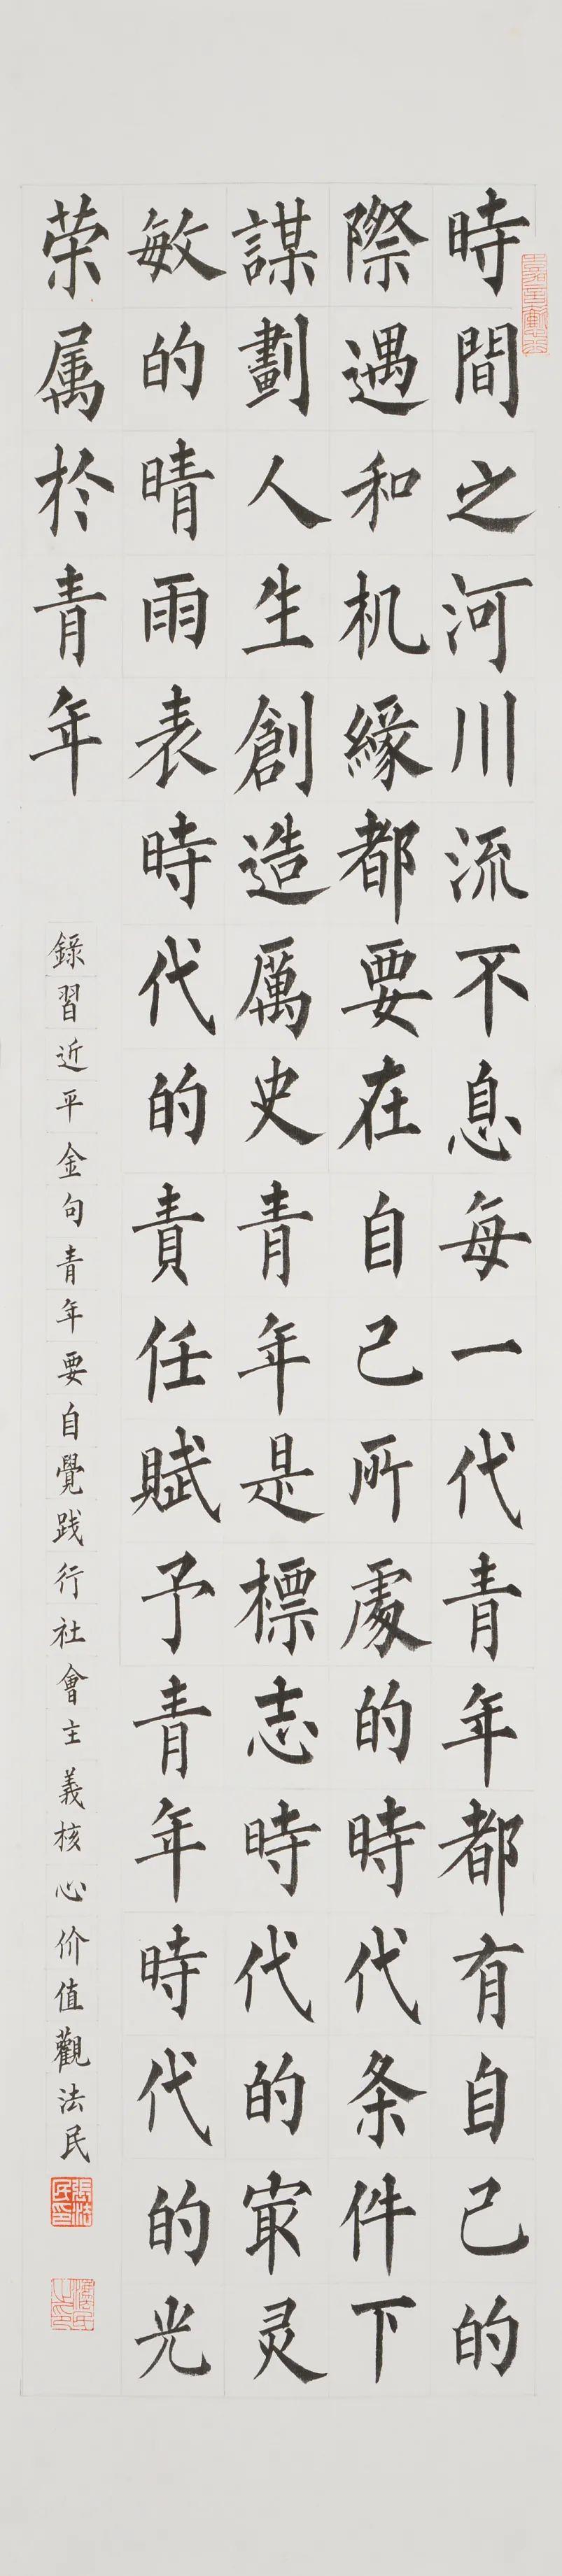 時間之河川流不息每一代青年都有自己的
際遇和机緣都要在自己所處的時代条件下
謀劃人生創造厲史青年是標志時代的冣灵
敏的晴雨表時代的責任賦予青年時代的光
荣属於青年
錄習近平金句青年要自覺践行社會主義核心价值觀法民
張法民印